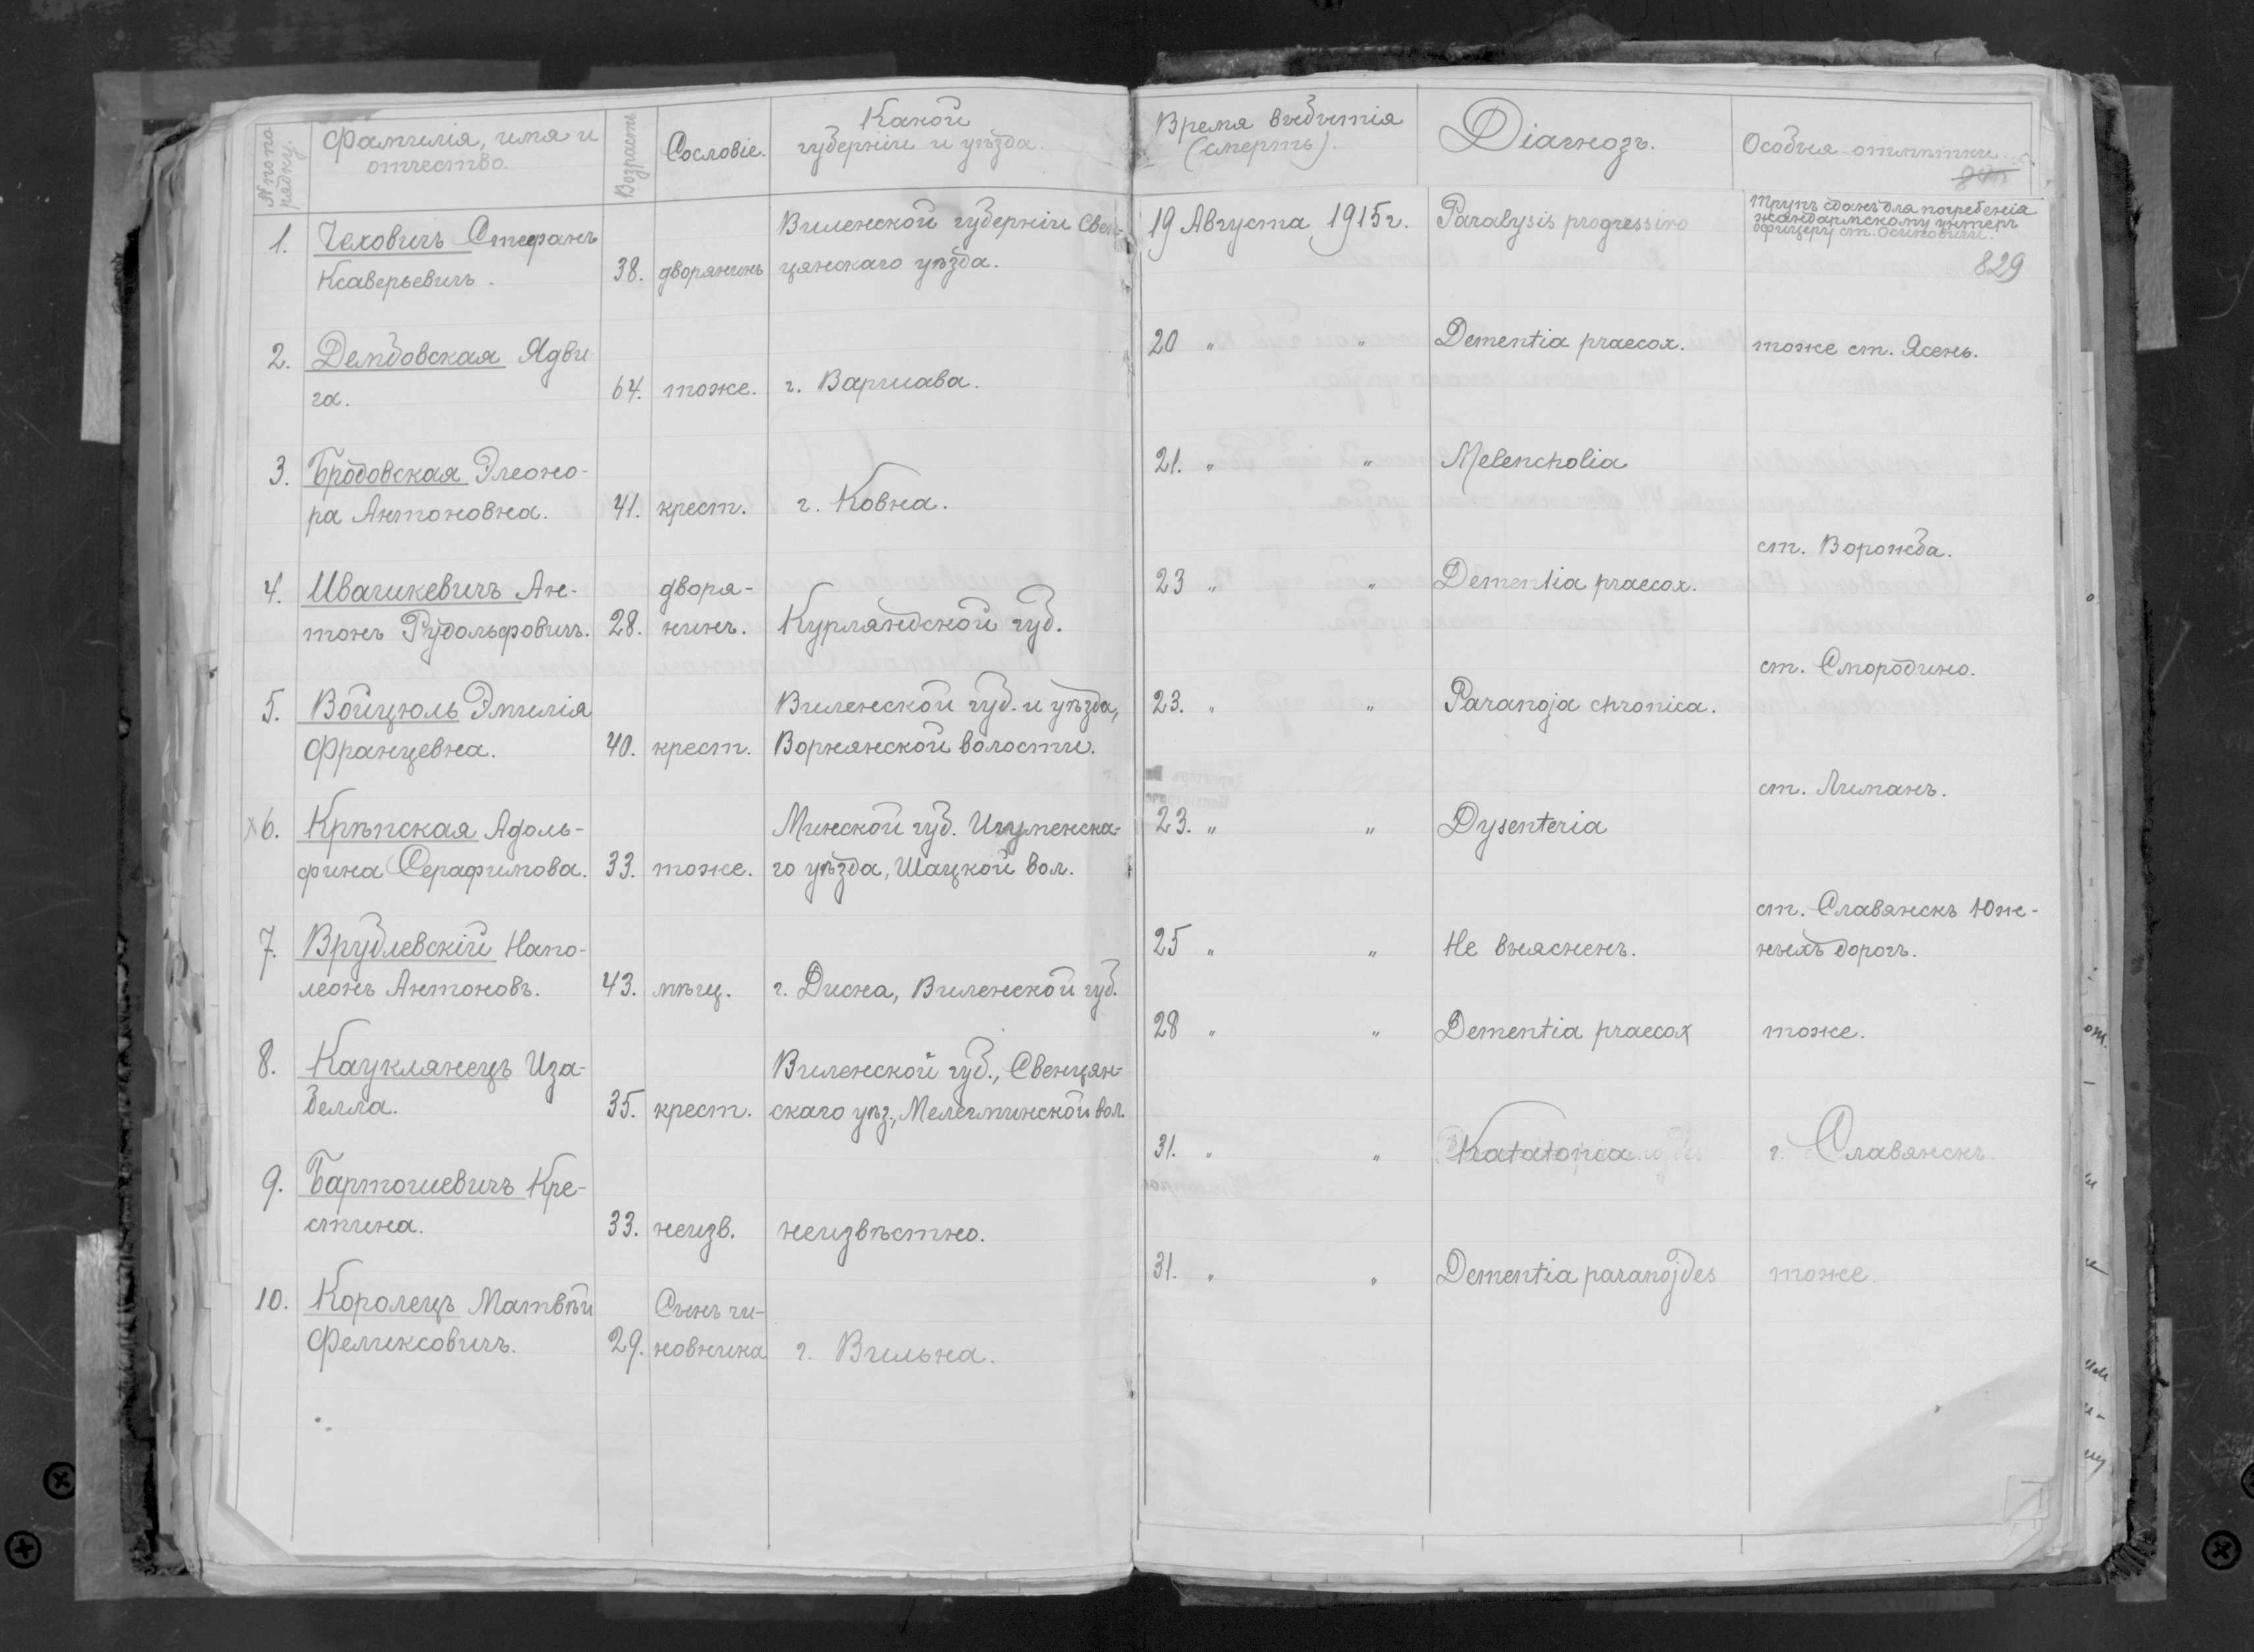 № по по-
рядку.
Фамилія, имя и
отчество.
Возрастъ
Сословіе.
Какой
губерніи и уѣзда.
1. Чеховичъ Стефанъ
Ксаверьевичъ.
38. дворянинъ
Виленской губерніи Свен-
цянскаго уѣзда.
2. Дембовская Ядви
га.
64. тоже. г. Варшава.
3. Бродовская Элеоно-
ра Антоновна. 41. крест. г. Ковна.
4. Ивашкевичъ Ан-
тонъ Рудольфовичъ. 28.
дворя-
нинъ. Курляндской губ.
5. Войцюль Эмилія
Францевна. 40. крест.
Виленской губ. и уѣзда,
Ворнянской волости.
6. Крѣпская Адоль-
фина Серафимова. 33. тоже.
Минской губ. Игуменска-
го уѣзда, Шацкой вол.
7. Врублевскій Напо-
леонъ Антоновъ. 43. мѣщ. г. Дисна, Виленской губ.
8. Кауклянецъ Иза-
белла. 35. крест.
Виленской губ., Свенцян-
скаго уѣз., вол.
9. Бартошевичъ Кре-
стина. 33. неизв. неизвѣстно.
10. Королецъ Матвѣй
Феликсовичъ. 29.
Сынъ чи-
новника г. Вильна.
Время выбытія
(смерть).
Діагнозъ.
Особыя отмѣтки.
19 Августа 1915 г. Paralysis progressiva
Трупъ сданъ для погребенія
жандармскому унтеръ
офицеру ст. Осиповичи.
829
20 " " Dementia praecox. тоже ст. Ясень.
21. " " Melencholia
ст. Ворожба.
23 " " Dementia praecox.
ст. Смородино.
23. " " Paranoja chronica.
ст. Лиманъ.
23. " " Dysenteria
ст. Славянскъ Юж-
ныхъ дорогъ.
25 " " Не выясненъ.
28 " " Dementia praecox тоже.
31. " " Katatonia г. Славянскъ
31. " " Dementia paranojdes тоже.